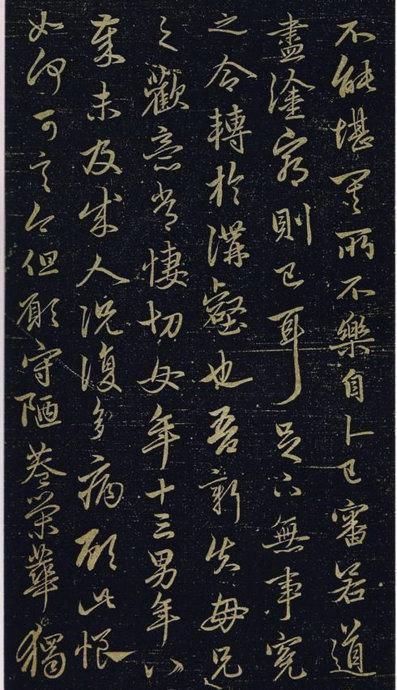 不能堪其所不樂自卜已審若道
盡塗窮則已耳足下無事冤
之令轉於溝壑也吾新失母兄
之歡意常悽切女年十三男年八
歲未及成人況復多病顧此恨
如何可言今但願守陋巷榮華獨